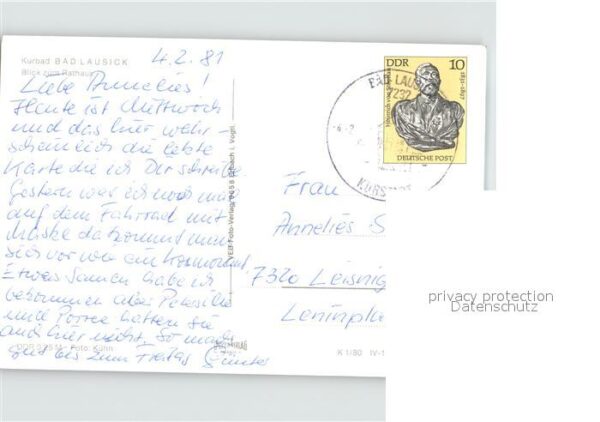 Kurbad BAD LAUSICK
Blick zum Rathaus
4.2.81
Liebe Annelies!
Heute ist Mittwoch
und das hier wahr-
scheinlich die letzte
Karte die ich Dir schreibe
Gestern war ich noch mal
auf dem Fahrrad mit
Maske da kommt man
sich vor wie ein Kosmonaut
Etwas Samen habe ich
bekommen aber Petersilie
und Porree hatten sie
auch hier nicht. So machs
gut bis zum Freitag Günter
DDR
Foto: Kühn
VEB Foto-Verlag
K 1/80 IV-1
DDR 10
Heinrich von Stephan
1831-1897
DEUTSCHE POST
BAD LAUSICK
7232
KURSTADT
Frau
Annelies S
7320 Leisnig
Leninpla
privacy protection
Datenschutz